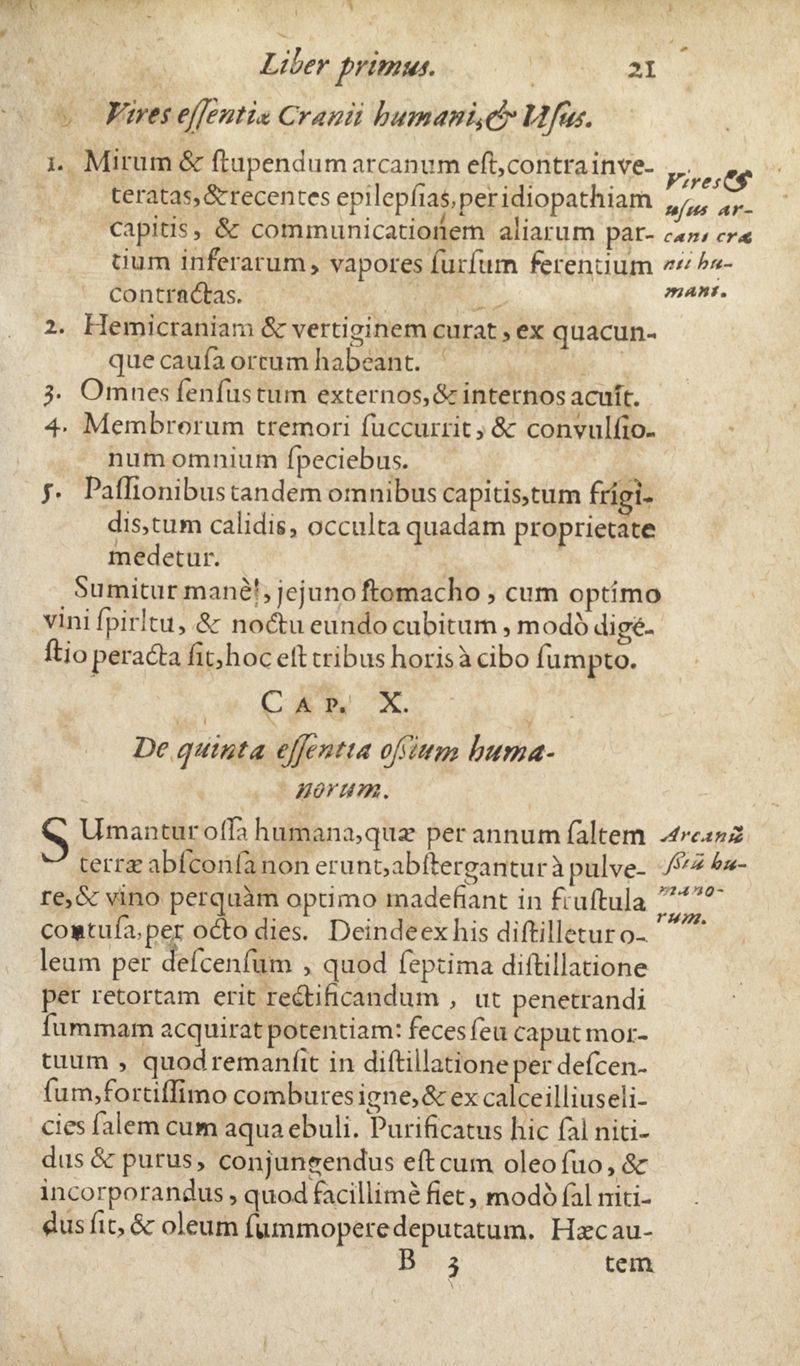 Liber primus. 21
Vires eſſentiæ Cranii humani,& Uſus.
1. Mirum & ſtupendum arcanum eſt, contra inve-
teratas, & recentes epilepſias, per idiopathiam
capitis, & communicationem aliarum par-
tium inferarum, vapores ſurſum ferentium
contractas.
Vires &
uſus ar-
cani cra
nii hu-
mani.
2. Hemicraniam & vertiginem curat, ex quacun-
que cauſa ortum habeant.
3. Omnes ſenſus tum externos, & internos acuit.
4. Membrorum tremori ſuccurrit, & convulſio-
num omnium ſpeciebus.
5. Paſſionibus tandem omnibus capitis, tum frigi-
dis, tum calidis, occulta quadam proprietate
medetur.
Sumitur manè, jejuno ſtomacho, cum optimo
vini ſpiritu, & noctu eundo cubitum, modò dige-
ſtio peracta ſit, hoc eſt tribus horis à cibo ſumpto.
CAP. X.
De quinta eſſentia oſſium huma-
norum.
SUmantur oſſa humana, quæ per annum ſaltem
terræ abſconſa non erunt, abſtergantur à pulve-
re, & vino perquàm optimo madefiant in fruſtula
contuſa, per octo dies. Deinde ex his diſtilletur o-
leum per deſcenſum, quod ſeptima diſtillatione
per retortam erit rectificandum, ut penetrandi
ſummam acquirat potentiam: feces ſeu caput mor-
tuum, quod remanſit in diſtillatione per deſcen-
ſum, fortiſſimo combures igne, & ex calce illius eli-
cies ſalem cum aqua ebuli. Purificatus hic ſal niti-
dus & purus, conjungendus eſt cum oleo ſuo, &
incorporandus, quod facillimè fiet, modò ſal niti-
dus ſit, & oleum ſummopere deputatum. Hæc au-
Arcanũ
ſſiũ hu-
mano-
rum.
B 3 tem